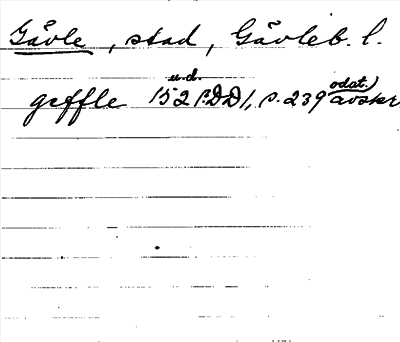 Gävle, stad, Gävleb. l.
u.d. odat.)
geffle 152 (DD1, s. 239 avskr.